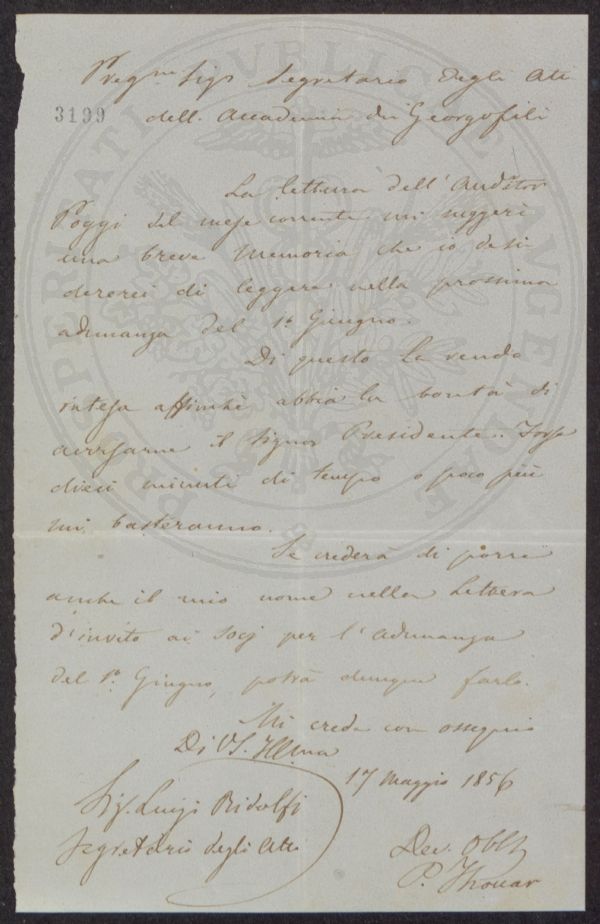 Preg.mo Sig.r Segretario degli Atti
3199
dell. Accademia dei Georgofili
La lettura dell' Auditor
Poggi del mese corrente mi suggerì
una breve Memoria che io desi
dererei di leggere nella prossima
adunanza del 1º Giugno.
Di questo la rendo
intesa affinchè abbia la bontà di
avvisarne il Signor Presidente. Forse
dieci minuti di tempo o poco più
mi basteranno.
Se crederà di porre
anche il mio nome nella Lettera
d'invito ai Socj per l'adunanza
del 1º Giugno, potrà dunque farlo.
Mi creda con ossequio
Di VS. Illma
17 Maggio 1856
Sig. Luigi Ridolfi
Segretario degli Atti
Dev. Obbl
P. Thouar
PROSPERITATI PUBLICAE AUGENDAE